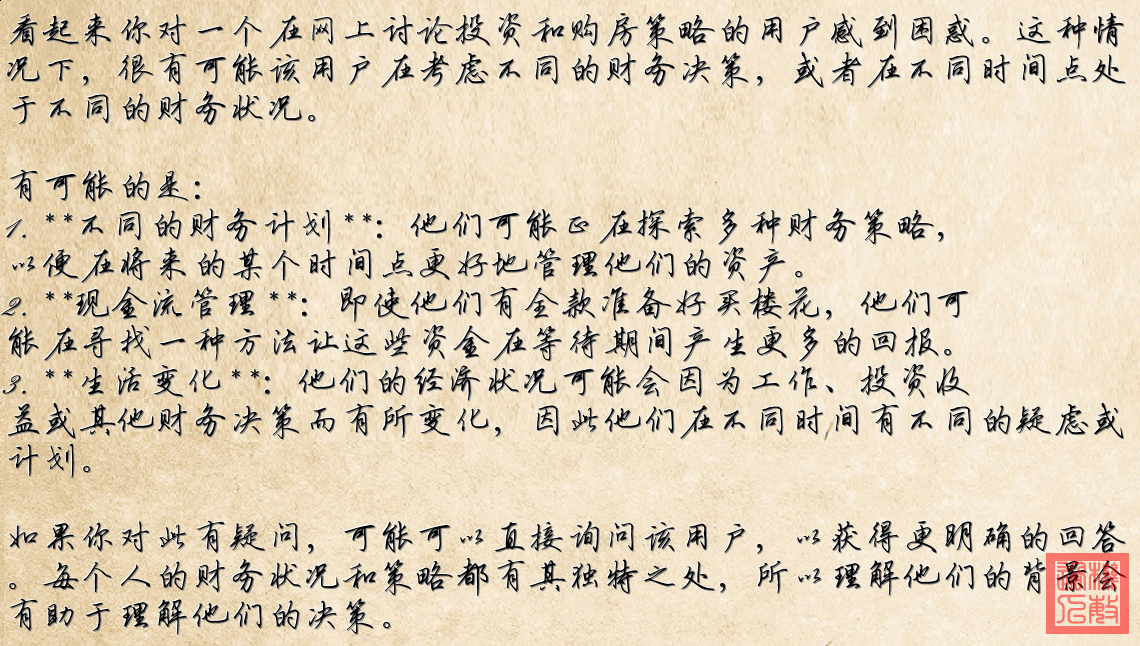 看起来你对一个在网上讨论投资和购房策略的用户感到困惑。这种情
况下，很有可能该用户在考虑不同的财务决策，或者在不同时间点处
于不同的财务状况。
有可能的是：
1. **不同的财务计划**：他们可能正在探索多种财务策略，
以便在将来的某个时间点更好地管理他们的资产。
2. **现金流管理**：即使他们有全款准备好买楼花，他们可
能在寻找一种方法让这些资金在等待期间产生更多的回报。
3. **生活变化**：他们的经济状况可能会因为工作、投资收
益或其他财务决策而有所变化，因此他们在不同时间有不同的疑虑或
计划。
如果你对此有疑问，可能可以直接询问该用户，以获得更明确的回答
。每个人的财务状况和策略都有其独特之处，所以理解他们的背景会
有助于理解他们的决策。